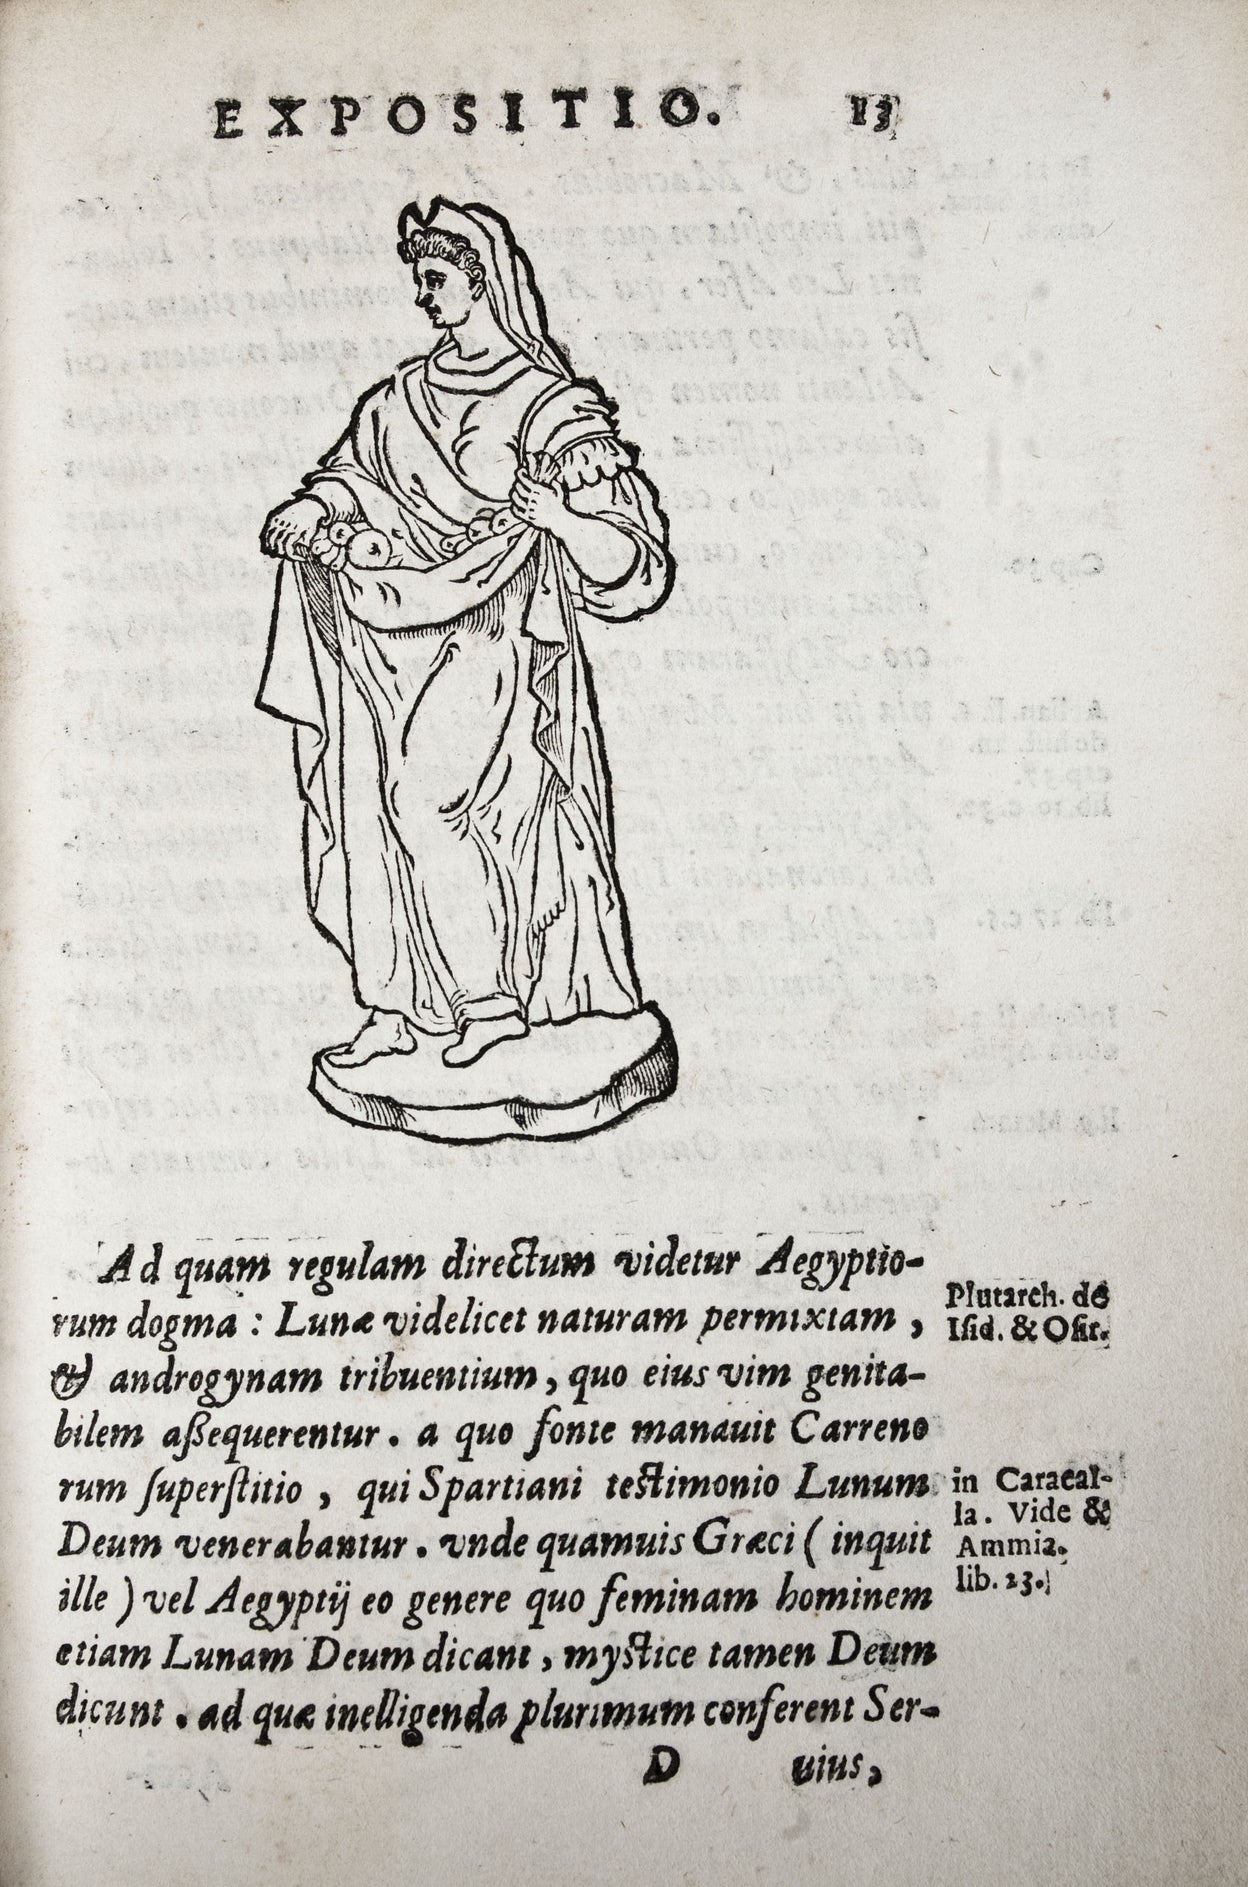 EXPOSITIO. 13
Ad quam regulam directum videtur Aegyptio-
rum dogma : Lunæ videlicet naturam permixtam ,
& androgynam tribuentium , quo eius vim genita-
bilem aßequerentur . a quo fonte manauit Carreno
rum ſuperſtitio , qui Spartiani teſtimonio Lunum
Deum venerabantur . vnde quamuis Græci ( inquit
ille ) vel Aegyptij eo genere quo feminam hominem
etiam Lunam Deum dicant , myſtice tamen Deum
dicunt . ad quæ inelligenda plurimum conferent Ser-
D uius,
Plutarch. de
Iſid. & Oſir.
in Caracal-
la. Vide &
Ammia.
lib. 23.